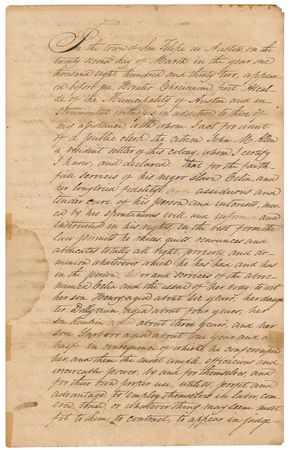 In the town of San Felipe de Austin on the
twenty second day of March in the year one
thousand eight hundred and thirty two, appear
ed before me Horatio Chriesman first Alcal
de of the Municipality of Austin and in
strumental witnesses in addition to those of
my assistance with whom I act for want
of a public clerk the citizen John M. Allen
a resident settler of this colony, whom I certify
I know, and declared that for the faith
ful services of his negro slave Celia and
her long tried fidelity and assiduous and
tender care of his person and interests, mov
ed by his spontaneous will, and informed and
instructed in his rights, in the best form the
law permits he makes, quits, renounces and
abdicates totally all right, property, and do-
minion whatsoever which he has had and has
in the person and services of the above
named Celia and the issue of her body to wit
her son Henry, aged about six years, her daugh
ter Polly ann, aged about four years, her
son aged about three years, and her
son aged about one year and a
half. In consequence of which he confers upon
her, and them the most ample, efficacious and
irrevocable power, by and for themselves, and
for their own proper use, utility, profit and
advantage, to employ themselves in labor, com
merce, trade, or whatever thing may seem most
fit to them; to contract, to appear in judge